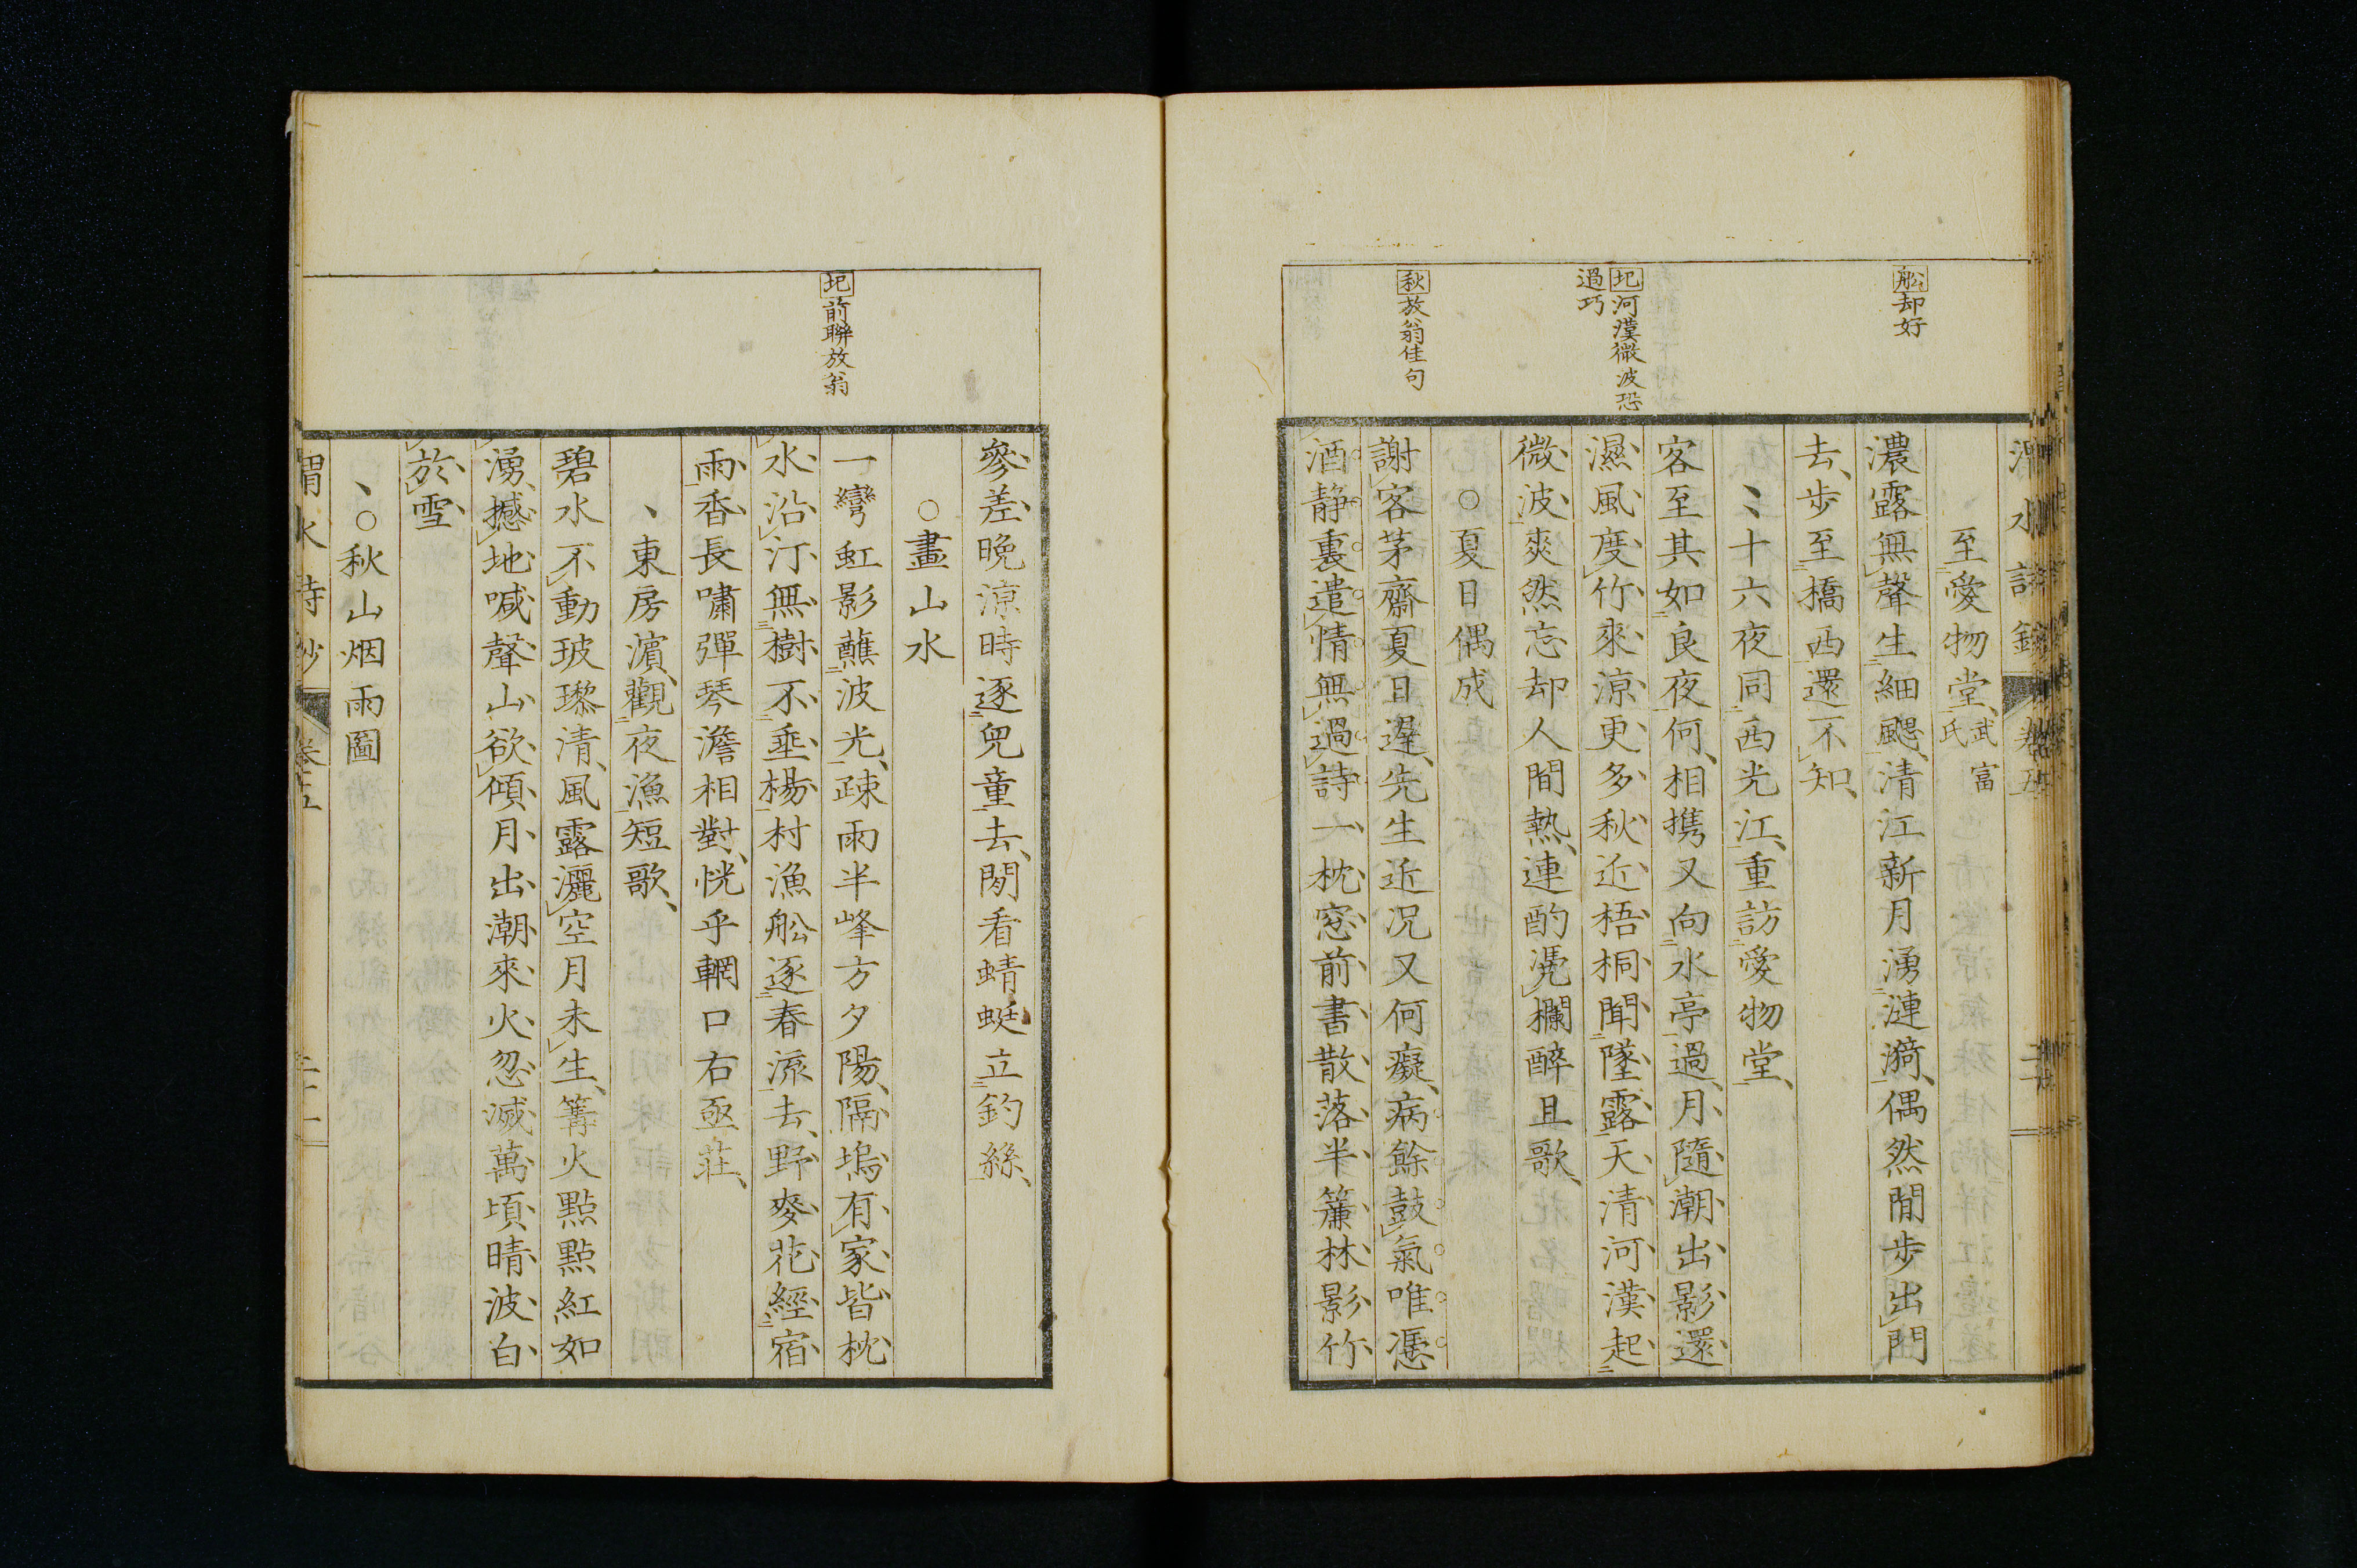 舩却好
圯河漢微波恐
過巧
秋放翁佳句
至愛物堂武富氏
濃露無聲生細颸清江新月湧漣漪偶然閒步出門
去步至橋西還不知
十六夜同西光江重訪愛物堂
客至其如良夜何相携又向水亭過月隨潮出影還
濕風度竹來涼更多秋近梧桐聞墜露天清河漢起
微波爽然忘却人間熱連酌凴欄醉且歌
○夏日偶成
謝客茅齋夏日遲先生近況又何癡病餘鼓氣唯憑
酒静裏遣情無過詩一枕窓前書散落半簾林影竹
圯前聯放翁
參差晩涼時逐兒童去閒看蜻蜓立釣絲
○畫山水
一彎虹影蘸波光疎雨半峰方夕陽隔塢有家皆枕
水沿汀無樹不垂楊村漁舩逐春流去野麥花經宿
雨香長嘯彈琴澹相對恍乎輞口右丞莊
東房濵觀夜漁短歌
碧水不動玻瓈清風露灑空月未生篝火點點紅如
湧撼地喊聲山欲傾月出潮來火忽滅萬頃晴波白
於雪
○秋山烟雨圖
渭水詩鈔 卷五 二十一